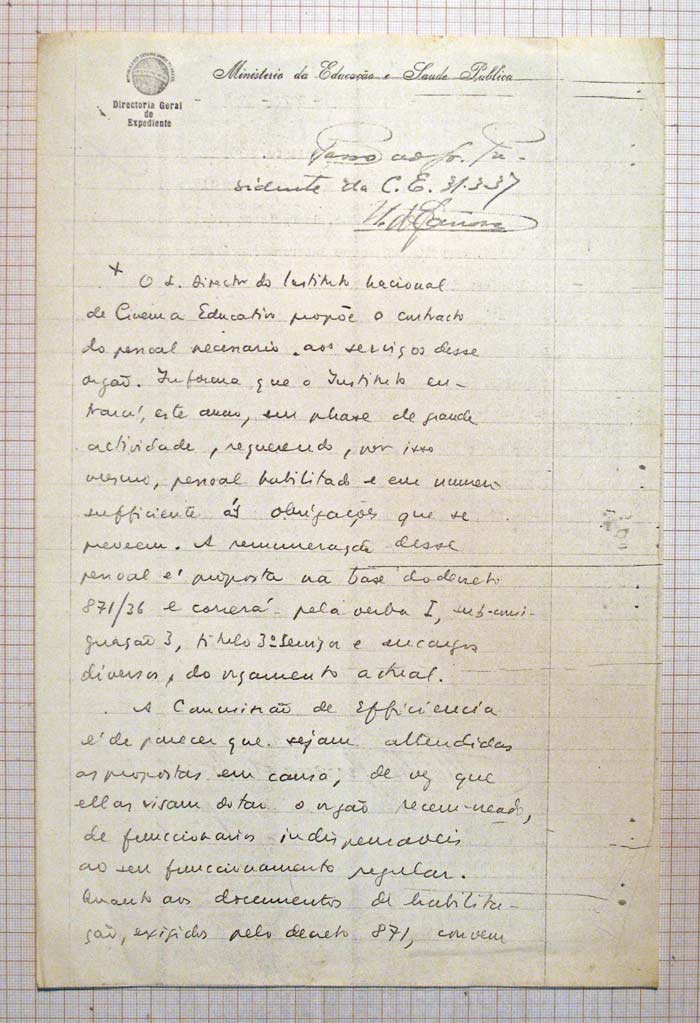 Ministerio da Educação e Saude Publica
Directoria Geral
de
Expediente
Passo ao Sr. Pre-
sidente da C. E. 31.3.37
x O S. Director do Instituto Nacional
de Cinema Educativo propõe o contracto
do pessoal necessario aos serviços desse
orgão. Informa que o Instituto en-
trará, este anno, em phase de grande
actividade, requerendo, por isso
mesmo, pessoal habilitado e em numero
sufficiente ás obrigações que se
preveem. A remuneração desse
pessoal é proposta na base do decreto
871/36 e correrá pela verba I, sub-consi-
gnação 3, titulo 3º Serviços e encargos
diversos, do orçamento actual.
A Commissão de Efficiencia
é de parecer que sejam attendidas
as propostas em causa, de vez que
ellas visam dotar o orgão recem-creado,
de funccionarios indispensaveis
ao seu funccionamento regular.
Quanto aos documentos de habilita-
ção, exigidos pelo decreto 871, convem